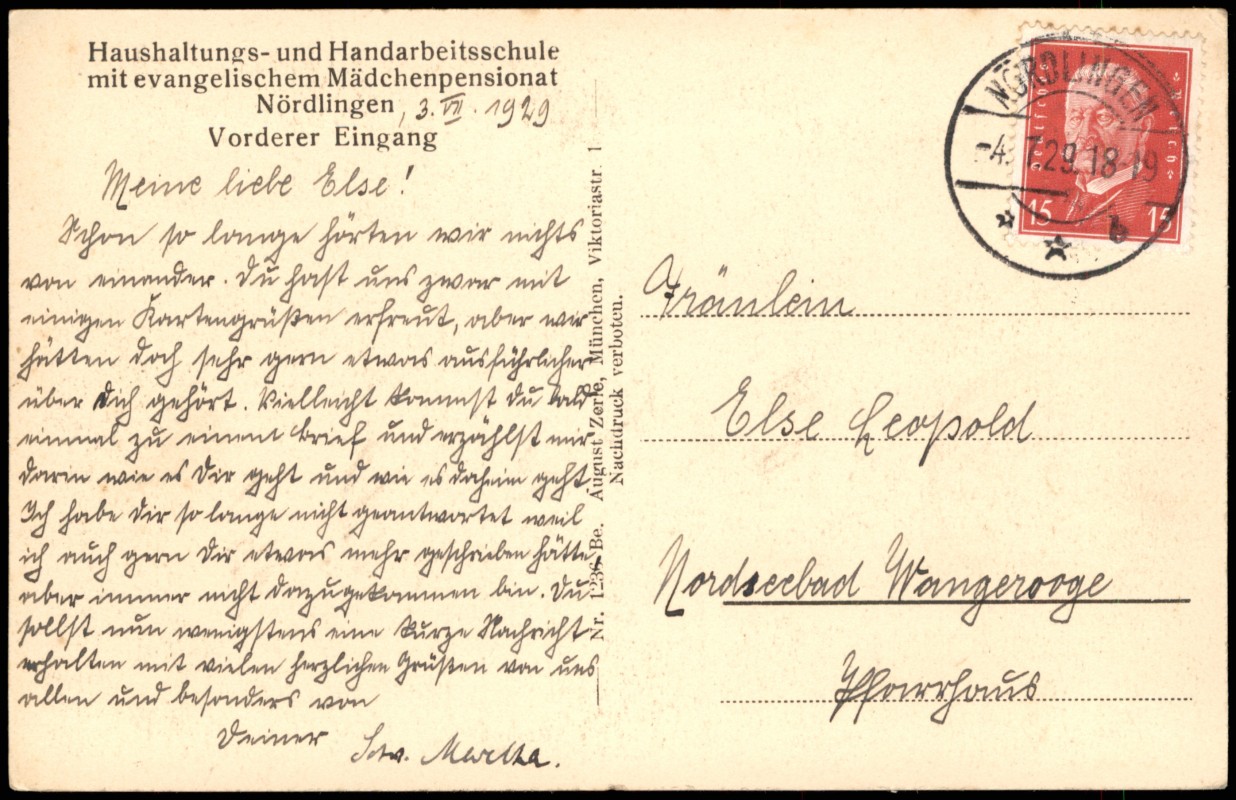 Haushaltungs- und Handarbeitsschule
mit evangelischem Mädchenpensionat
Nördlingen, 3. VII. 1929
Vorderer Eingang
Meine liebe Else!
Schon so lange hörten wir nichts
von einander. Du hast uns zwar mit
einigen Kartengrüßen erfreut, aber wir
hätten doch sehr gern etwas ausführlicher
über Dich gehört. Vielleicht kommst Du bald
einmal zu einem Brief und erzählst mir
darin wie es Dir geht und wie es daheim geht.
Ich habe Dir so lange nicht geantwortet weil
ich auch gern Dir etwas mehr geschrieben hätte
aber immer nicht dazugekommen bin. Du
sollst nun wenigstens eine kurze Nachricht
erhalten mit vielen herzlichen Grüßen von uns
allen und besonders von
Deiner
Schw. Martha.
Nr. 1236 Be. August Zerle, München, Viktoriastr. 1
Nachdruck verboten.
NÖRDLINGEN
-4. 7.29. 18-19
b
Deutsches Reich
15 15
Fräulein
Else Leopold
Nordseebad Wangerooge
Pfarrhaus